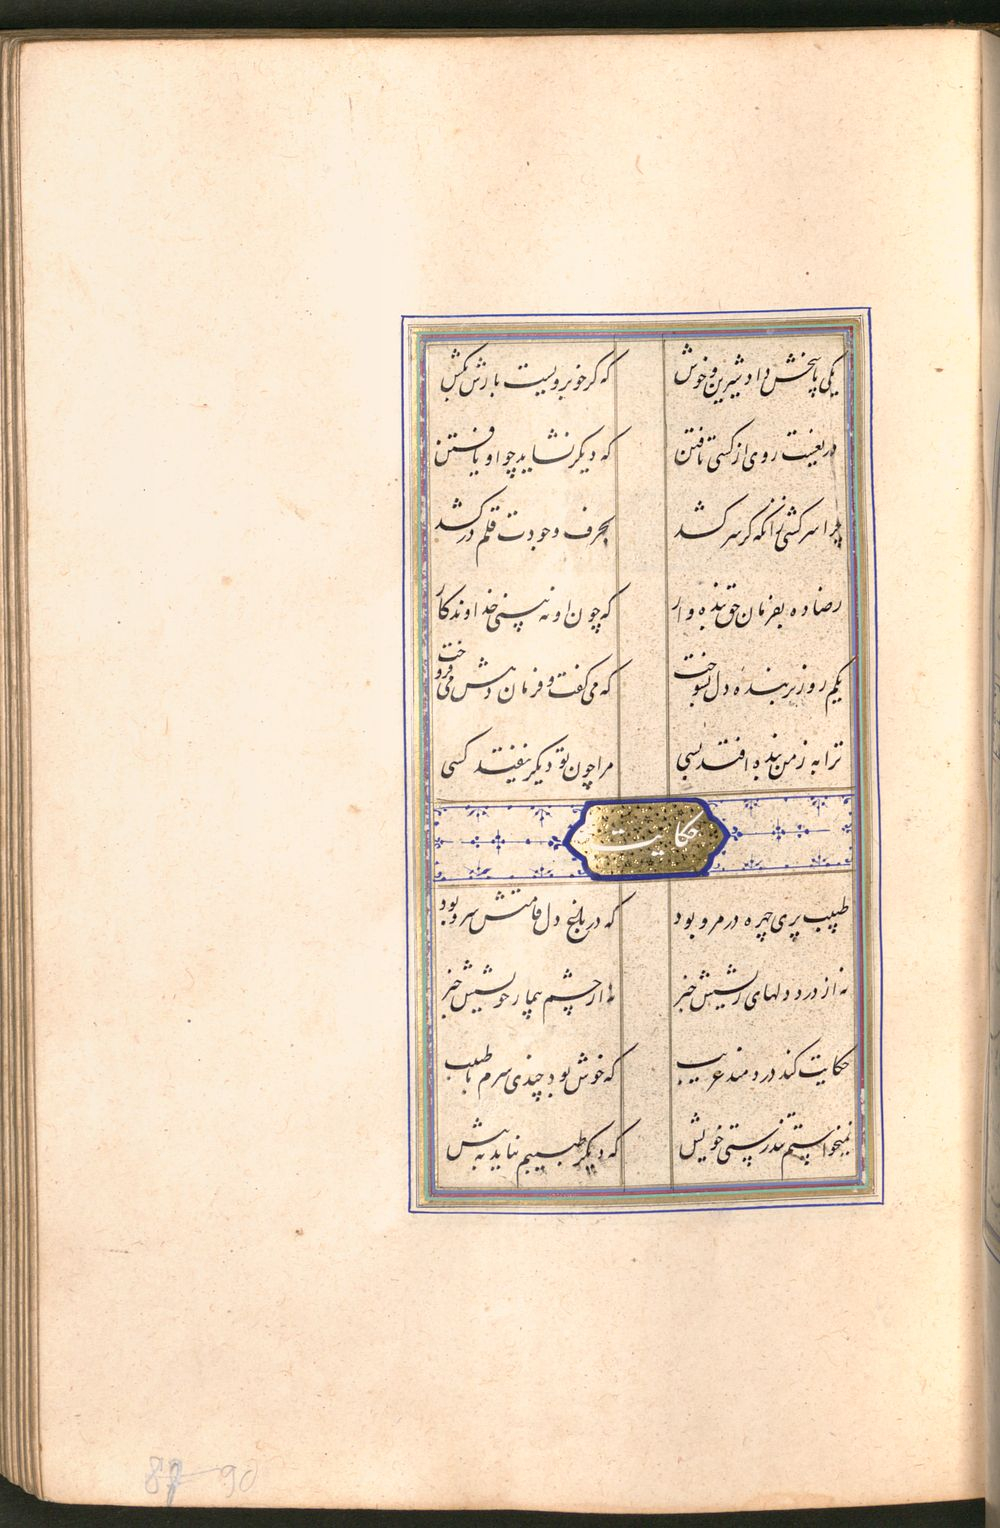 یکی پاسخش داد شیرین و خوش که کر خوبرویست بارش بکش
دریغست روی از کسی تافتن که دیکر نشاید چو او یافتن
چرا سرکشی زانکه کر سرکشد بحرف وجودت قلم درکشد
رضا ده بفرمان حق بنده وار که چون او نه بینی خداوندکار
یکم روز بر بنده دل بسوخت که می کفت و فرمان دهش می فروخت
ترا به ز من بنده افتد بسی مرا چون تو دیکر نیفتد کسی
حکایت
طبیب پری چهره در مرو بود که در باغ دل قامتش سرو بود
نه از درد دلهای ریشش خبر نه از چشم بیمار خویشش خبر
حکایت کند دردمند غریب که خوش بود چندی سرم با طبیب
نمیخواستم تندرستی خویش که دیکر طبیبم نیاید به پیش
87 90